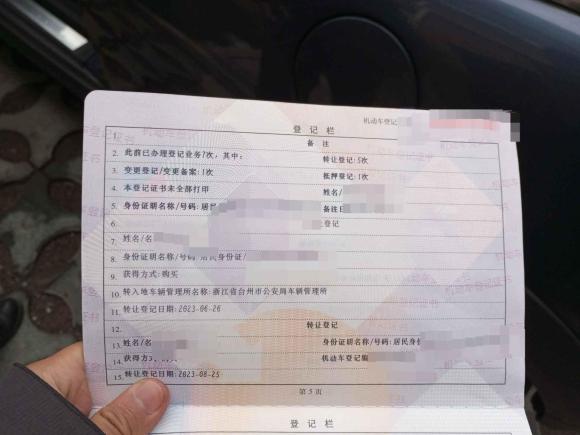 机动车登记
登记栏
1. 备注
2. 此前已办理登记业务7次，其中： 转让登记:5次
3. 变更登记/变更备案:1次 抵押登记:1次
4. 本登记证书未全部打印 姓名/
5. 身份证明名称/号码:居民 备注日
6. 登记
7. 姓名/名
8. 身份证明名称/号码:居民身份证/
9. 获得方式:购买
10. 转入地车辆管理所名称:浙江省台州市公安局车辆管理所
11. 转让登记日期:2023-06-26
12. 转让登记
13. 姓名/ 身份证明名称/号码:居民身份
14. 获得方 机动车登记编
15. 转让登记日期:2023-08-25
第 5 页
登记栏